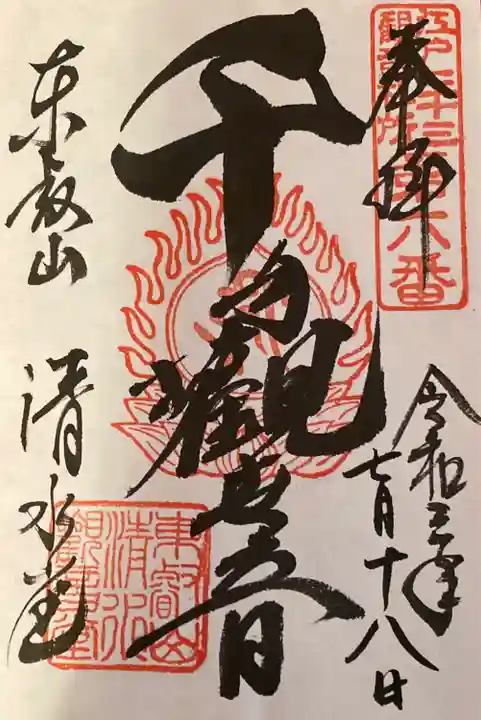 奉拝
江戸三十三
観音札所
第六番
令和三年
七月十八日
千手観世音
東叡山
清水堂
東叡山
清水
観音堂